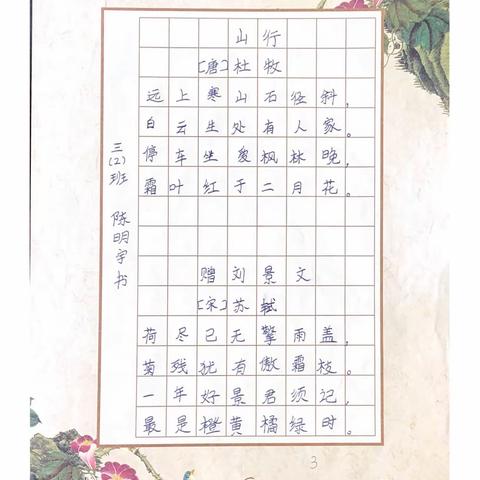 山行
[唐]杜牧
远上寒山石径斜，
白云生处有人家。
停车坐爱枫林晚，
霜叶红于二月花。
赠刘景文
[宋]苏轼
荷尽已无擎雨盖，
菊残犹有傲霜枝。
一年好景君须记，
最是橙黄橘绿时。
三(2)班 陈明宇书
3